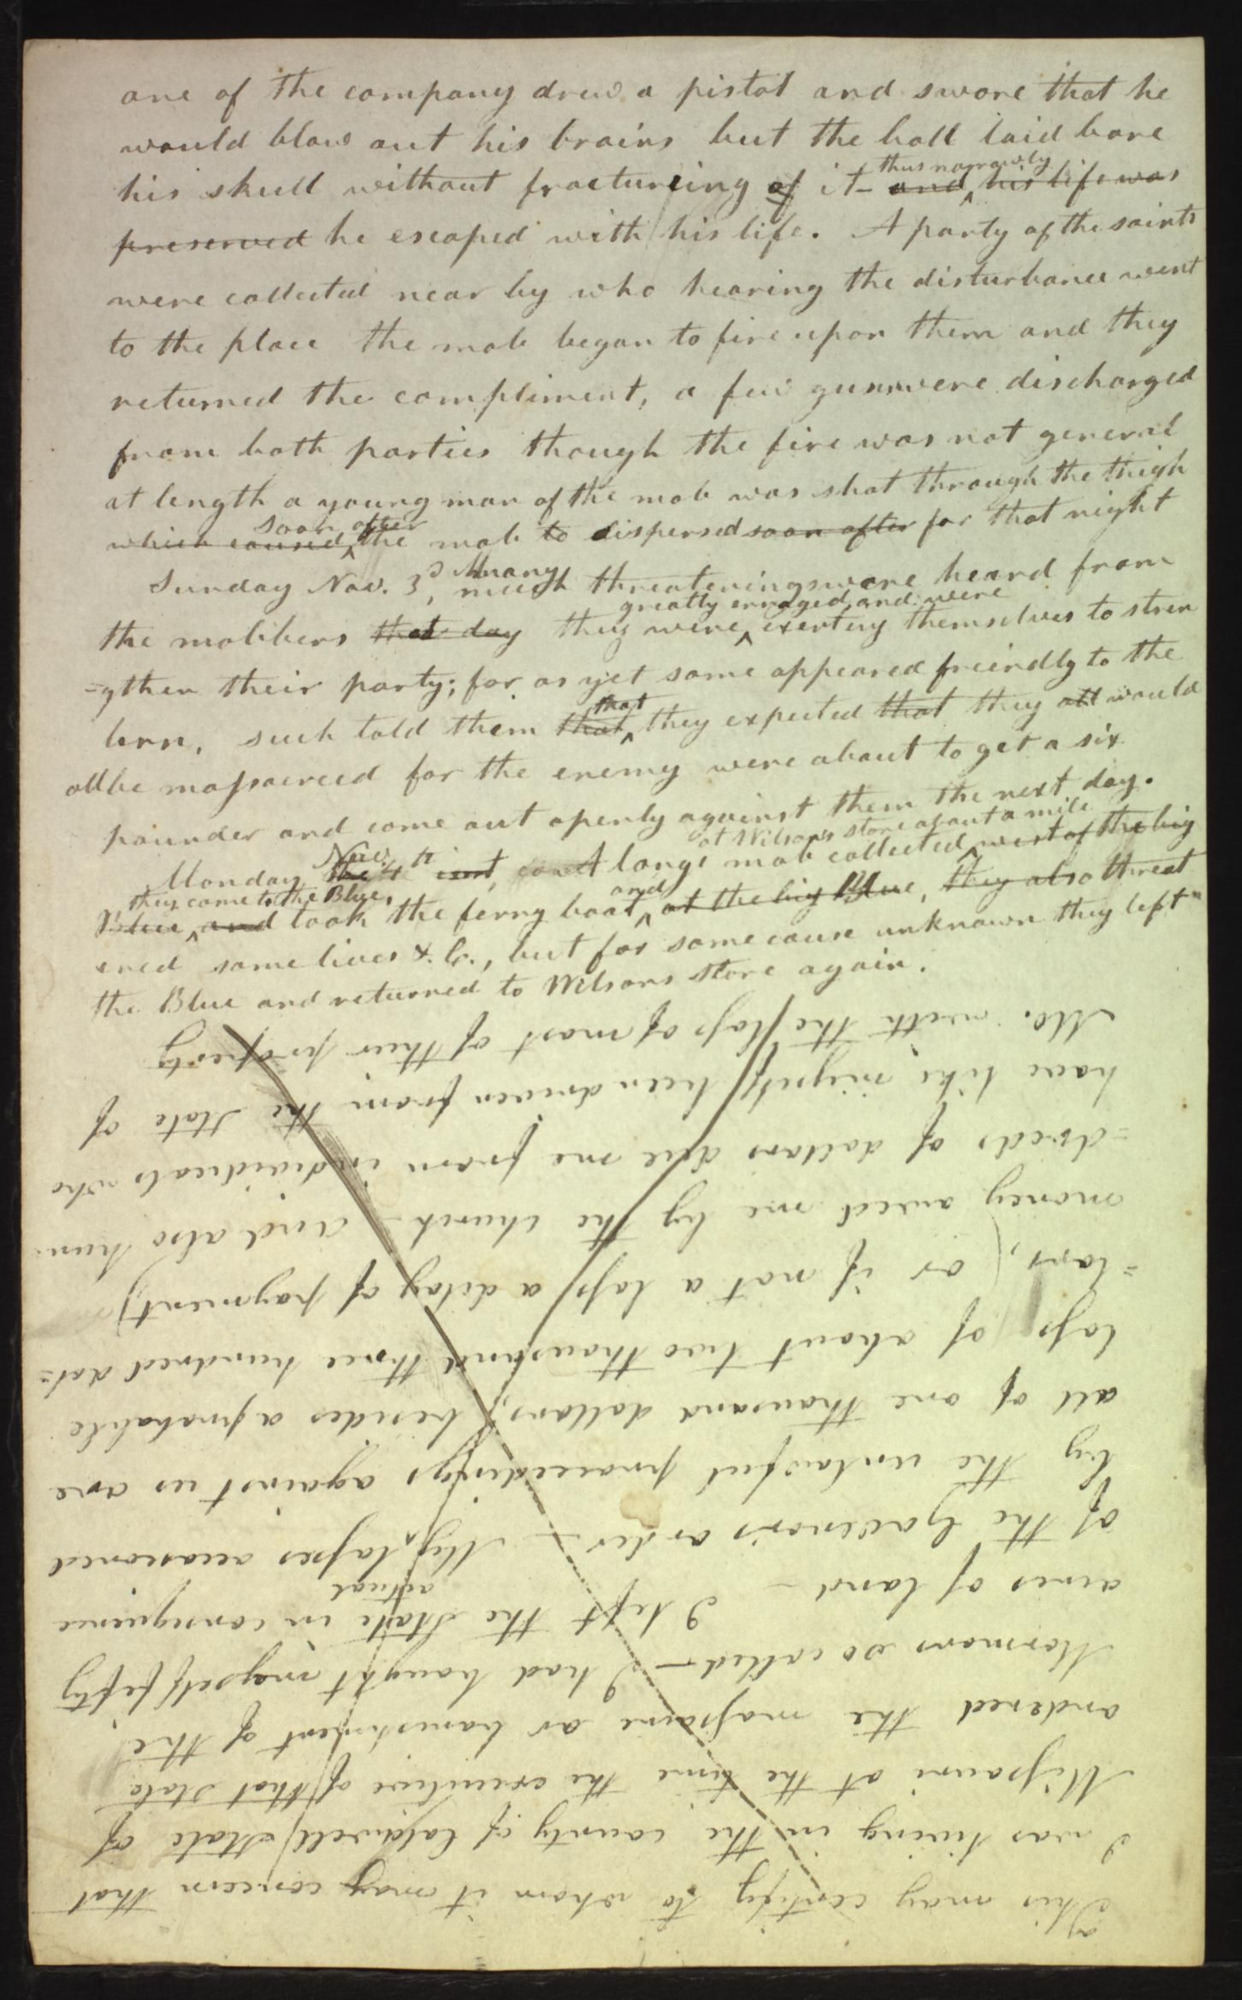 one of the company drew a pistol and swore that he
would blow out his brains but the ball laid bare
his skull without fractureing of it– and thus narrowly his life was
preserved he escaped with his life. A party of the saints
were collected near by who hearing the disturbance went
to the place the mob began to fire upon them and they
returned the compliment, a few guns were discharged
from both parties though the fire was not general
at length a young man of the mob was shot through the thigh
which caused soon after the mob to dispersed soon after for that night
Sunday Nov. 3d, much many threatenings were heard from
the mobbers that day they were greatly enraged, and were exerting themselves to stren
=gthen their party; for as yet some appeared friendly to the
brn, such told them that that they expected that they all would
all be massacreed for the enemy were about to get a six
pounder and come out openly against them the next day.
Monday the Nov. 4th A large mob collected at Wilson's store about a mile west of the big
Blue, they came to the Blue, and took the ferry boat and at the big Blue, they also threat
ened some lives &. C., but for some cause unknown they left
the Blue and returned to Wilsons store again.
This may certify to whom it may concern that
I was living in the county of Caldwell State of
Missouri at the time the executive of that State
ordered the massacre or banishment of the
Mormons so called – I had bought myself fifty
acres of land – I left the State in consequence
of the Govenor's order – My actual losses occasioned
by the unlawful proceedings against us are
all of one thousand dollars, besides a probable
loss of about two thousand three hundred dol=
=lars, (or if not a loss a delay of payment)
money owed me by the church – And also hun
=dreds of dollars due me from individuals who
have like myself been driven from the State of
Mo. with the loss of most of their property